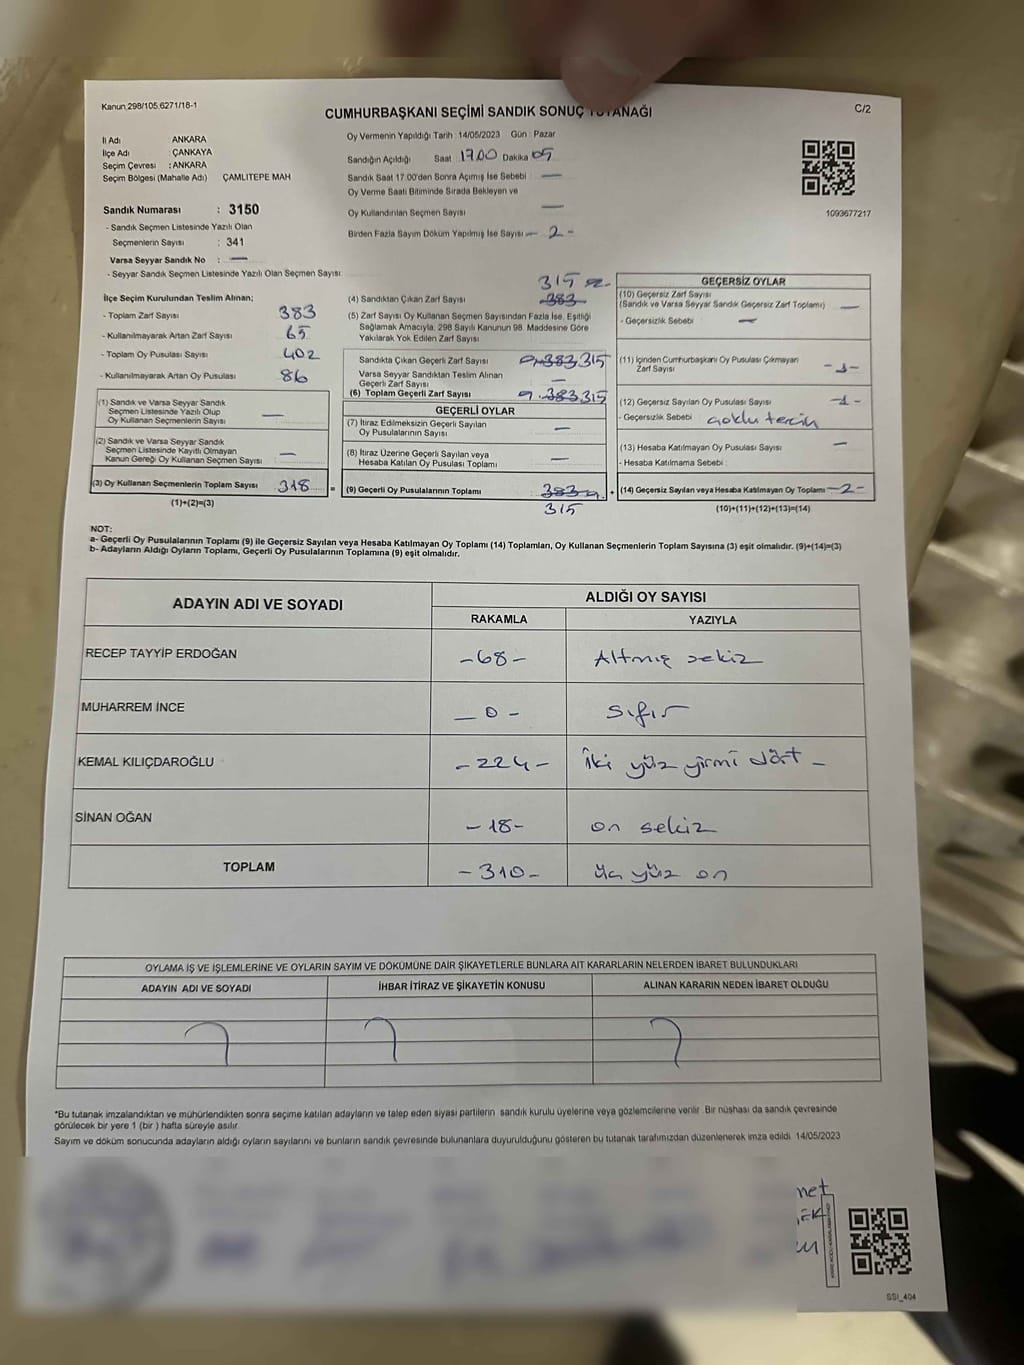 Kanun,298/105.6271/18-1
CUMHURBAŞKANI SEÇİMİ SANDIK SONUÇ TUTANAĞI
C/2
İl Adı ANKARA
İlçe Adı ÇANKAYA
Seçim Çevresi : ANKARA
Seçim Bölgesi (Mahalle Adı) ÇAMLITEPE MAH
Oy Vermenin Yapıldığı Tarih : 14/05/2023 Gün : Pazar
Sandığın Açıldığı Saat 17.00 Dakika 05
Sandık Saat 17:00'den Sonra Açımış İse Sebebi —
Oy Verme Saati Bitiminde Sırada Bekleyen ve
Oy Kullandırılan Seçmen Sayısı —
Birden Fazla Sayım Döküm Yapılmış İse Sayısı — 2 -
1093677217
Sandık Numarası : 3150
- Sandık Seçmen Listesinde Yazılı Olan
Seçmenlerin Sayısı : 341
Varsa Seyyar Sandık No : —
- Seyyar Sandık Seçmen Listesinde Yazılı Olan Seçmen Sayısı
İlçe Seçim Kurulundan Teslim Alınan;
- Toplam Zarf Sayısı 383
- Kullanılmayarak Artan Zarf Sayısı 65
- Toplam Oy Pusulası Sayısı 402
- Kullanılmayarak Artan Oy Pusulası 86
(1) Sandık ve Varsa Seyyar Sandık
Seçmen Listesinde Yazılı Olup
Oy Kullanan Seçmenlerin Sayısı —
(2) Sandık ve Varsa Seyyar Sandık
Seçmen Listesinde Kayıtlı Olmayan
Kanun Gereği Oy Kullanan Seçmen Sayısı —
(3) Oy Kullanan Seçmenlerin Toplam Sayısı 318 =
(1)+(2)=(3)
315
(4) Sandıktan Çıkan Zarf Sayısı 383
(5) Zarf Sayısı Oy Kullanan Seçmen Sayısından Fazla İse, Eşitliği
Sağlamak Amacıyla, 298 Sayılı Kanunun 98. Maddesine Göre
Yakılarak Yok Edilen Zarf Sayısı
Sandıkta Çıkan Geçerli Zarf Sayısı 383 315
Varsa Seyyar Sandıktan Teslim Alınan
Geçerli Zarf Sayısı —
(6) Toplam Geçerli Zarf Sayısı 383 315
GEÇERLİ OYLAR
(7) İtiraz Edilmeksizin Geçerli Sayılan
Oy Pusulalarının Sayısı —
(8) İtiraz Üzerine Geçerli Sayılan veya
Hesaba Katılan Oy Pusulası Toplamı —
(9) Geçerli Oy Pusulalarının Toplamı 383 +
315
GEÇERSİZ OYLAR
(10) Geçersiz Zarf Sayısı
(Sandık ve Varsa Seyyar Sandık Geçersiz Zarf Toplamı) —
- Geçersizlik Sebebi —
(11) İçinden Cumhurbaşkanı Oy Pusulası Çıkmayan
Zarf Sayısı -1-
(12) Geçersiz Sayılan Oy Pusulası Sayısı -1-
- Geçersizlik Sebebi çoklu tercih
(13) Hesaba Katılmayan Oy Pusulası Sayısı —
- Hesaba Katılmama Sebebi
(14) Geçersiz Sayılan veya Hesaba Katılmayan Oy Toplamı -2-
(10)+(11)+(12)+(13)=(14)
NOT:
a- Geçerli Oy Pusulalarının Toplamı (9) ile Geçersiz Sayılan veya Hesaba Katılmayan Oy Toplamı (14) Toplamları, Oy Kullanan Seçmenlerin Toplam Sayısına (3) eşit olmalıdır. (9)+(14)=(3)
b- Adayların Aldığı Oyların Toplamı, Geçerli Oy Pusulalarının Toplamına (9) eşit olmalıdır.
ADAYIN ADI VE SOYADI
ALDIĞI OY SAYISI
RAKAMLA YAZIYLA
RECEP TAYYİP ERDOĞAN -68- Altmış sekiz
MUHARREM İNCE -0- Sıfır
KEMAL KILIÇDAROĞLU -224- İki yüz yirmi dört -
SİNAN OĞAN -18- on sekiz
TOPLAM -310- üç yüz on
OYLAMA İŞ VE İŞLEMLERİNE VE OYLARIN SAYIM VE DÖKÜMÜNE DAİR ŞİKAYETLERLE BUNLARA AİT KARARLARIN NELERDEN İBARET BULUNDUKLARI
ADAYIN ADI VE SOYADI İHBAR İTİRAZ VE ŞİKAYETİN KONUSU ALINAN KARARIN NEDEN İBARET OLDUĞU
*Bu tutanak imzalandıktan ve mühürlendikten sonra seçime katılan adayların ve talep eden siyasi partilerin sandık kurulu üyelerine veya gözlemcilerine verilir. Bir nüshası da sandık çevresinde
görülecek bir yere 1 (bir ) hafta süreyle asılır.
Sayım ve döküm sonucunda adayların aldığı oyların sayılarını ve bunların sandık çevresinde bulunanlara duyurulduğunu gösteren bu tutanak tarafımızdan düzenlenerek imza edildi. 14/05/2023
net
SSI_404